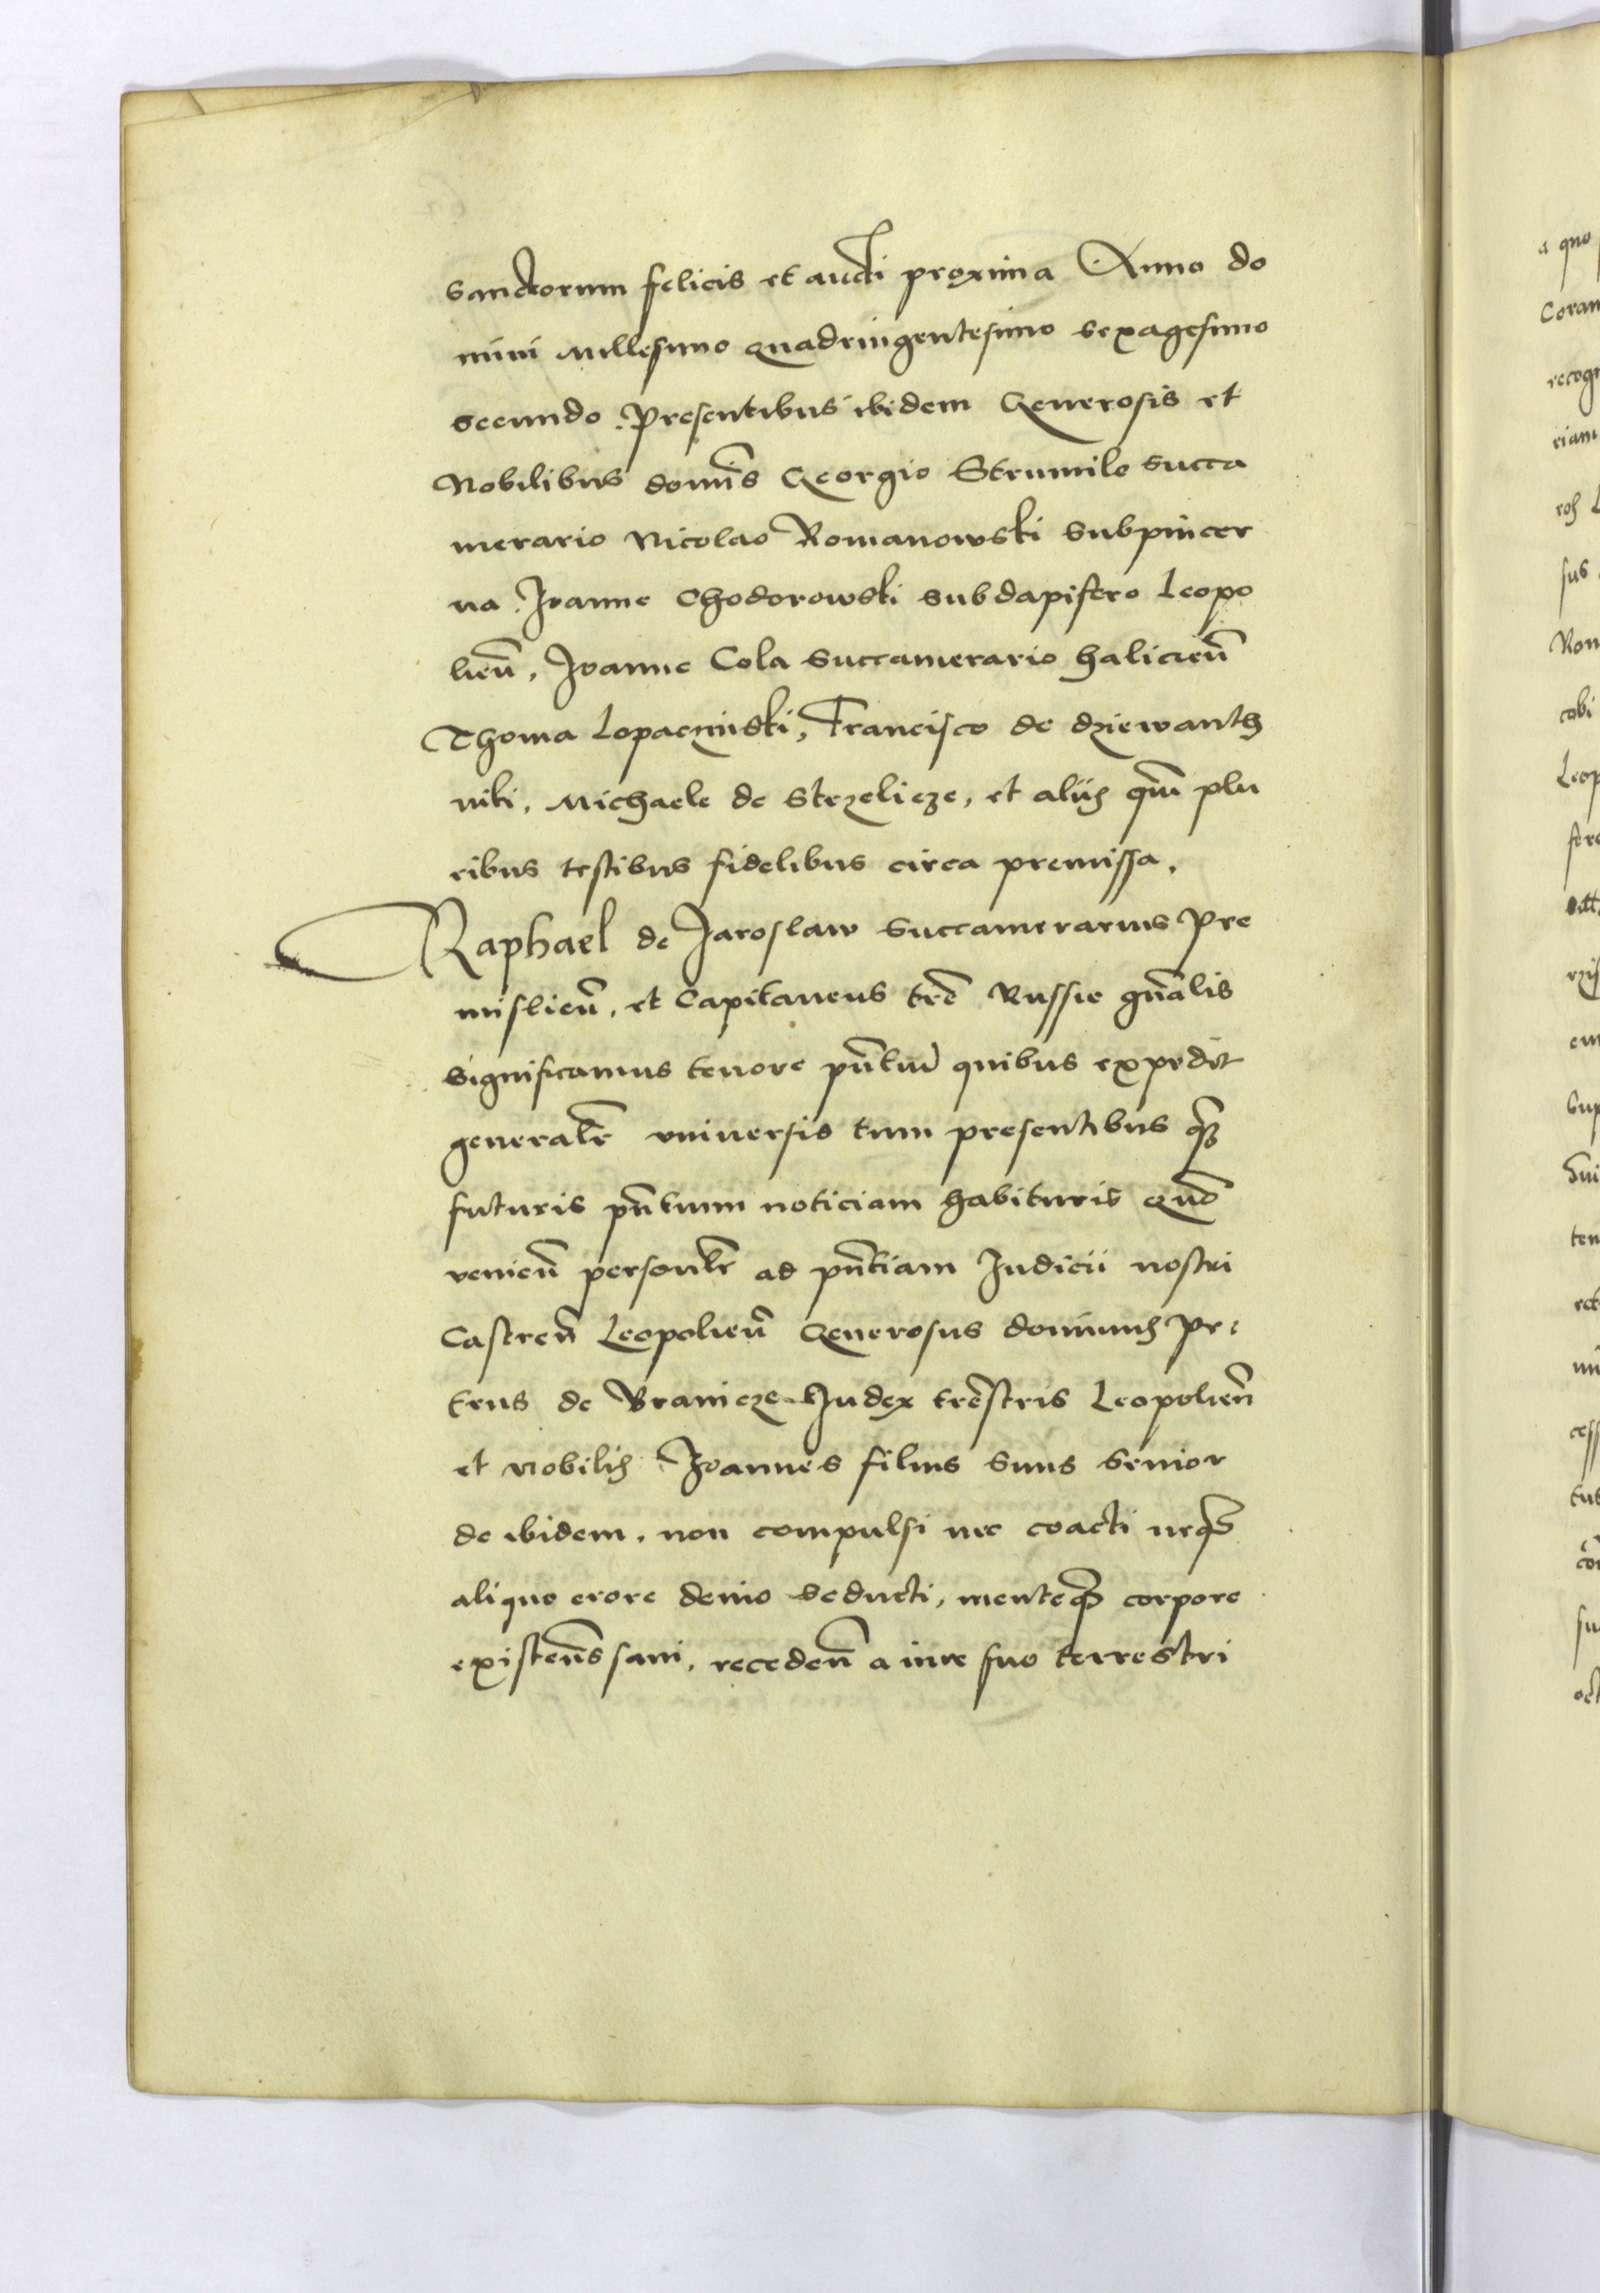 Sanctorum felicis et aucti proxima Anno do
mini Millesimo quadringentesimo sexagesimo
secundo. Presentibus ibidem Generosis et
Nobilibus domīs Georgio Strumilo Succa
merario Nicolao Romanowski subpincer
na Joanne Chodorowski subdapifero Leopo
lieñ, Joanne Cola Succamerario halicieñ
Thoma Lopaczinski, Francisco de dziewanth
niki, Michaele de Strzelicze, et aliis qm̄ plu
ribus testibus fidelibus circa premissa.
Raphael de Jaroslaw Succamerarius Pre
mislieñ, et Capitaneus trē Russie gñalis
significamus tenore pñtiū quibus expedit
generalr̄ vniversis tum presentibus qꝫ
futuris pñtium noticiam habituris Quō
venieñ personlr̄ ad pñtiam Judicii nostri
Castreñ Leopolieñ Generosus dominus Pe
trus de Branicze Judex trēstris Leopolieñ
et Nobilis Joannes filius suus senior
de ibidem, non compulsi nec coacti neqꝫ
aliquo erore devio seducti, menteqꝫ corpore
existeñs sani, recedeñ a iure suo terrestri
a quo
Coram
recogn
riam
sus
Rom
cobi
Leop
fere
em
sup
ten
cess
tus
su